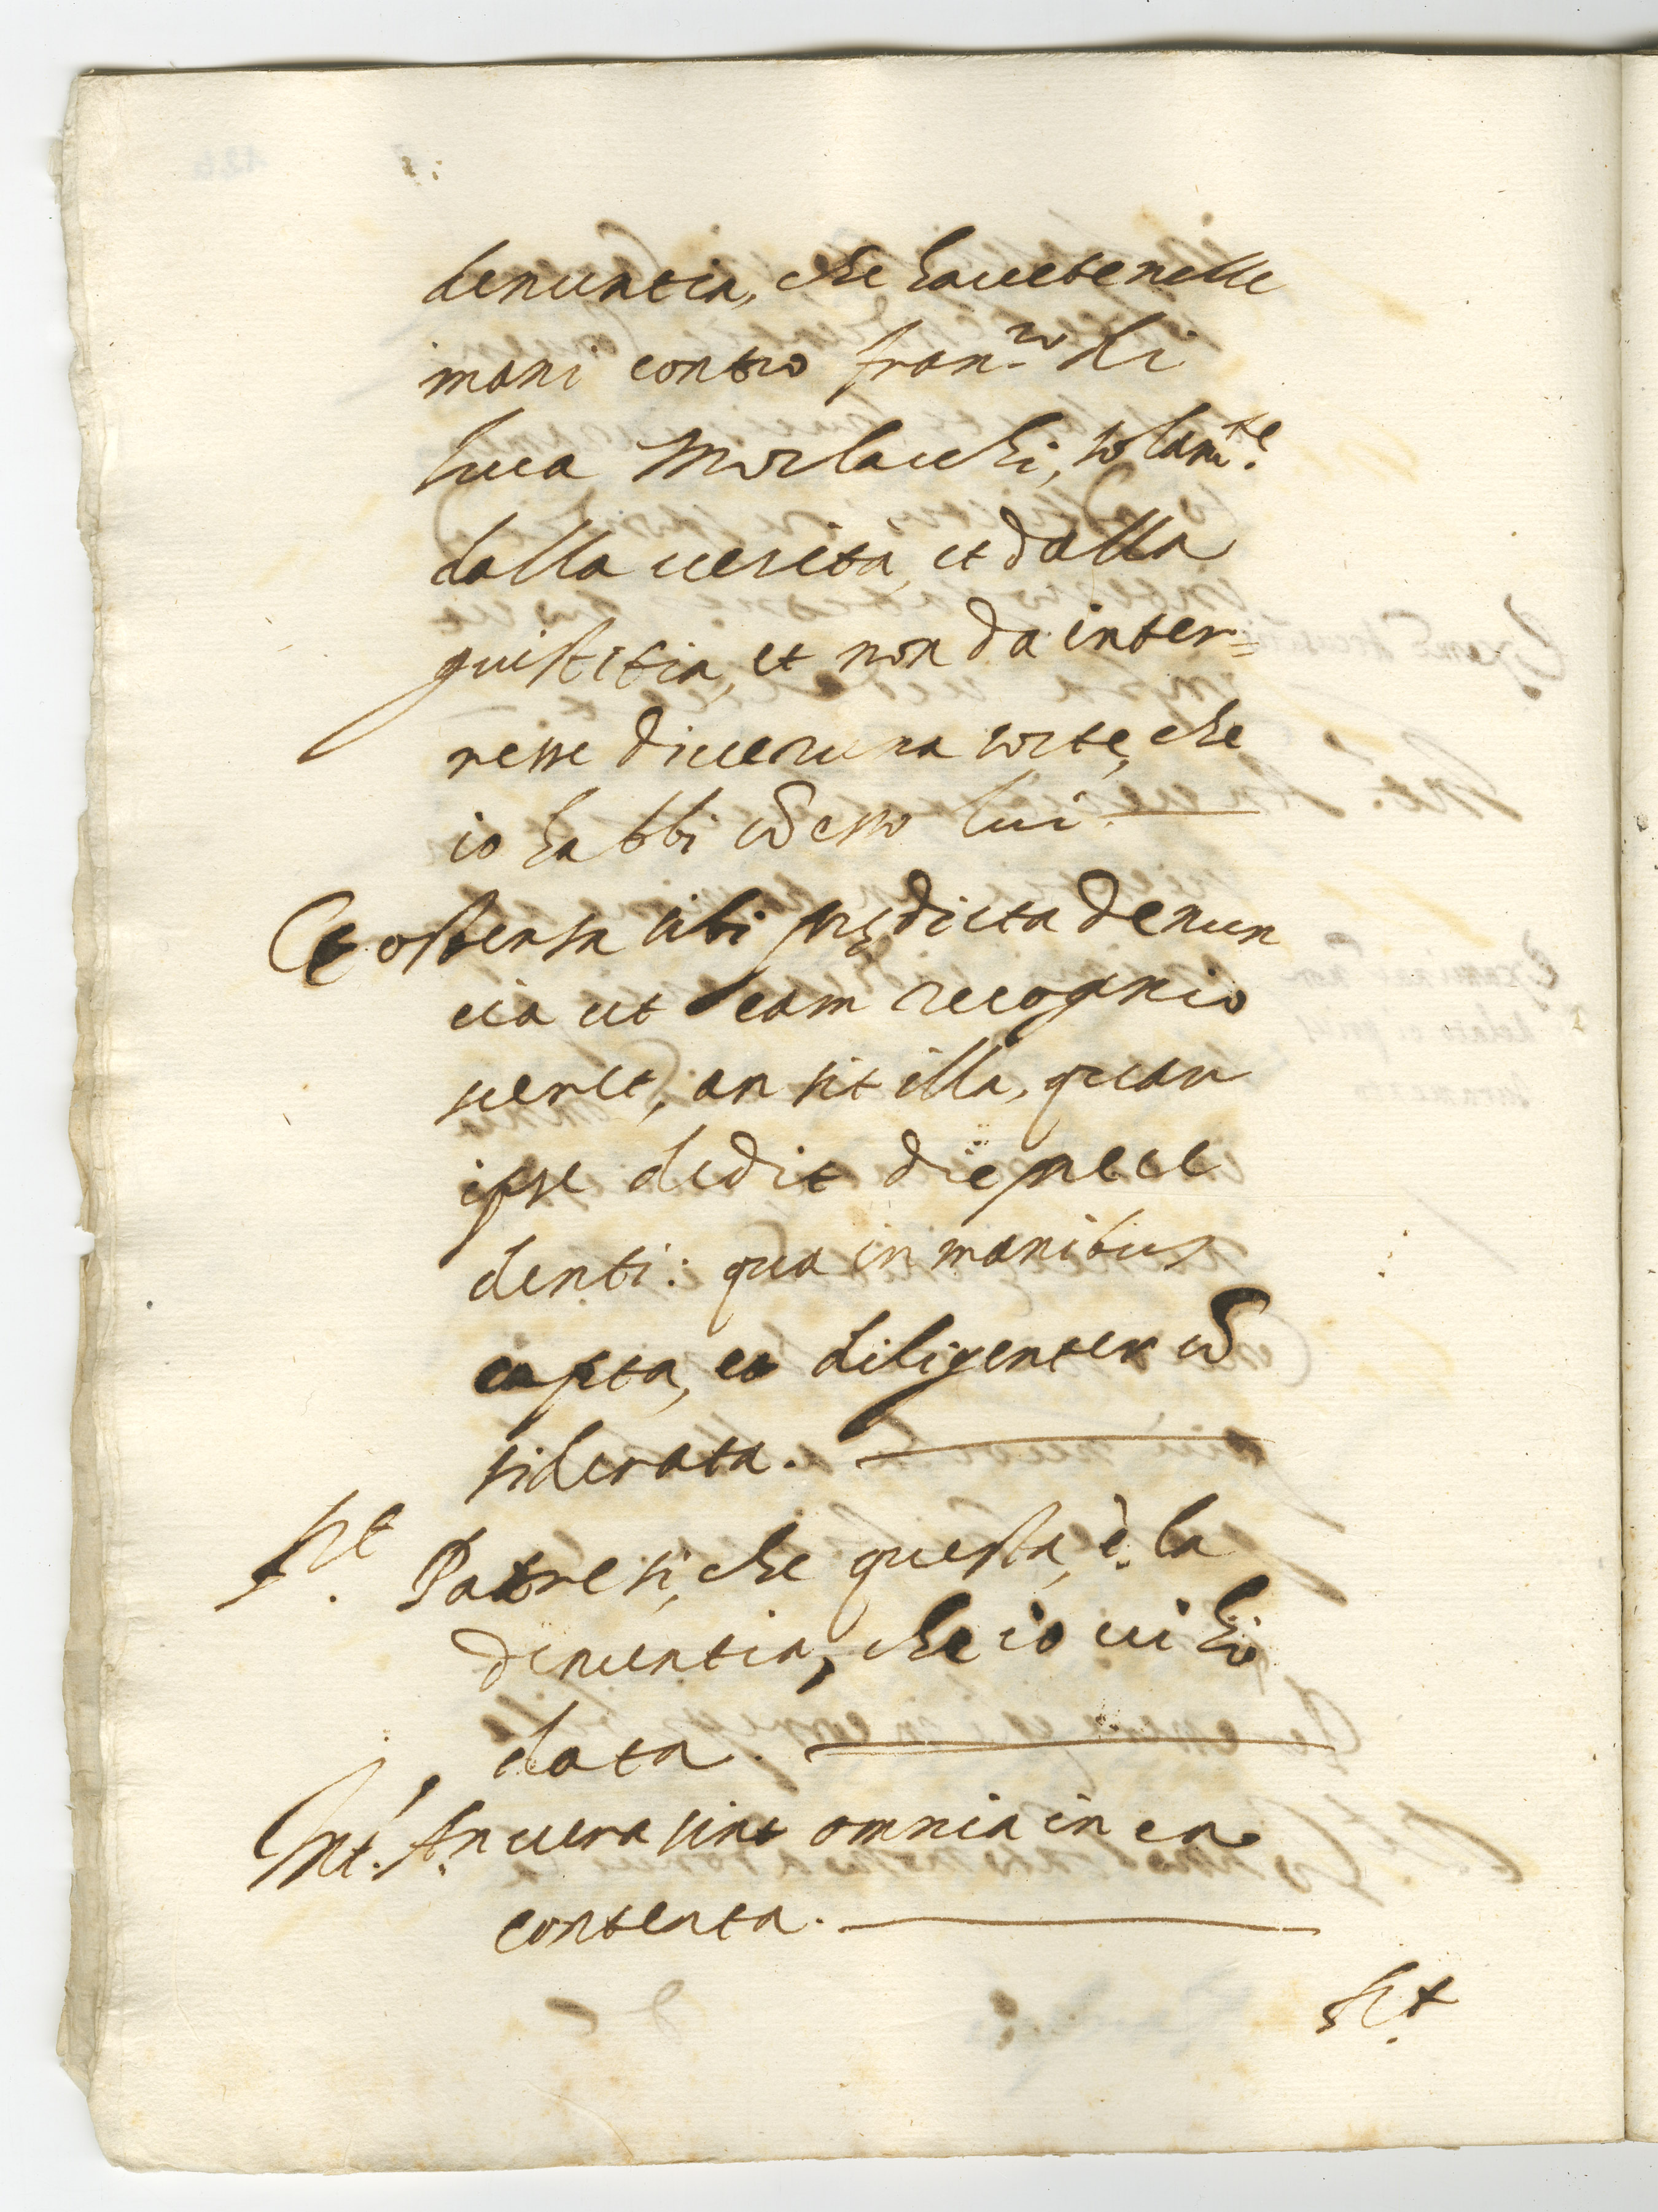 denuntia, che hauete nelle
mani contro fran.co di
luca Morlacchi, solam.te
dalla uerita, et dalla
giustitia, et non da inter=
resse di ueruna sorte, che
io habbi cõ esso lui.
Et ostensa sibi prędicta denun
cia ut eam recogno
sceret, an sit illa, quam
ipse dedit die prece
denti: qua in manibus
capta, et diligenter cõ
siderata.
Rt. Patre si, che questa, è la
denuntia, che io ui hò
data.
Int. An uera sint omnia in ea
contenta.
Rt.